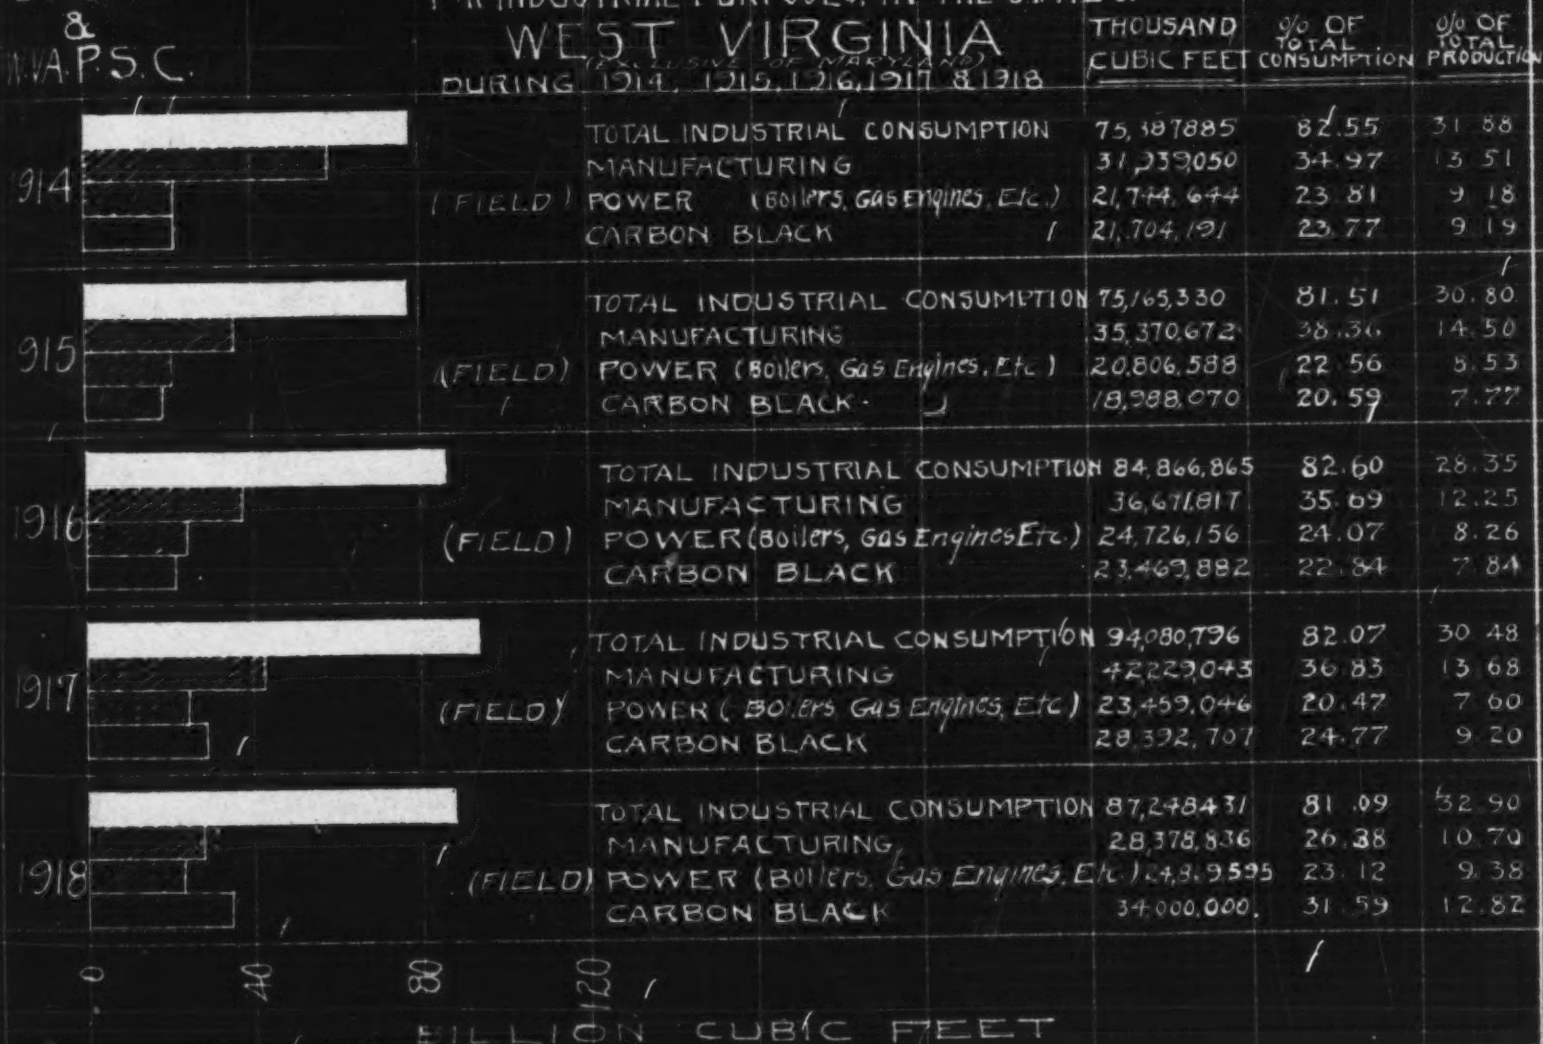 &
W.VA. P. S. C.
WEST VIRGINIA
(EXCLUSIVE OF MARYLAND)
DURING 1914, 1915, 1916, 1917 & 1918
THOUSAND CUBIC FEET
% OF TOTAL CONSUMPTION
% OF TOTAL PRODUCTION
1914
TOTAL INDUSTRIAL CONSUMPTION 82.55 31 88
MANUFACTURING 34.97 13 51
(FIELD) POWER (Boilers, Gas Engines, Etc.) 21,744,644 23 81 9 18
CARBON BLACK 21,704,191 23.77 9 19
1915
TOTAL INDUSTRIAL CONSUMPTION 75,165,330 81.51 30.80
MANUFACTURING 35,370,672 38.36 14.50
(FIELD) POWER (Boilers, Gas Engines, Etc) 20,806,588 22 56 8.53
CARBON BLACK 18,988,070 20.59 7.77
1916
TOTAL INDUSTRIAL CONSUMPTION 84,866,865 82.60 28.35
MANUFACTURING 36,671,817 35.69 12.25
(FIELD) POWER (Boilers, Gas Engines Etc.) 24,726,156 24.07 8.26
CARBON BLACK 23,469,882 22.84 7.84
1917
TOTAL INDUSTRIAL CONSUMPTION 94,080,796 82.07 30.48
MANUFACTURING 42229,043 36.83 13.68
(FIELD) POWER (Boilers Gas Engines, Etc) 23,459,046 20.47 7 60
CARBON BLACK 28,392,707 24.77 9.20
1918
TOTAL INDUSTRIAL CONSUMPTION 87,248431 81.09 32.90
MANUFACTURING 28,378,836 26.38 10.70
(FIELD) POWER (Boilers, Gas Engines, Etc) 23 12 9.38
CARBON BLACK 34,000,000. 31.59 12.82
0 40 80 120
BILLION CUBIC FEET